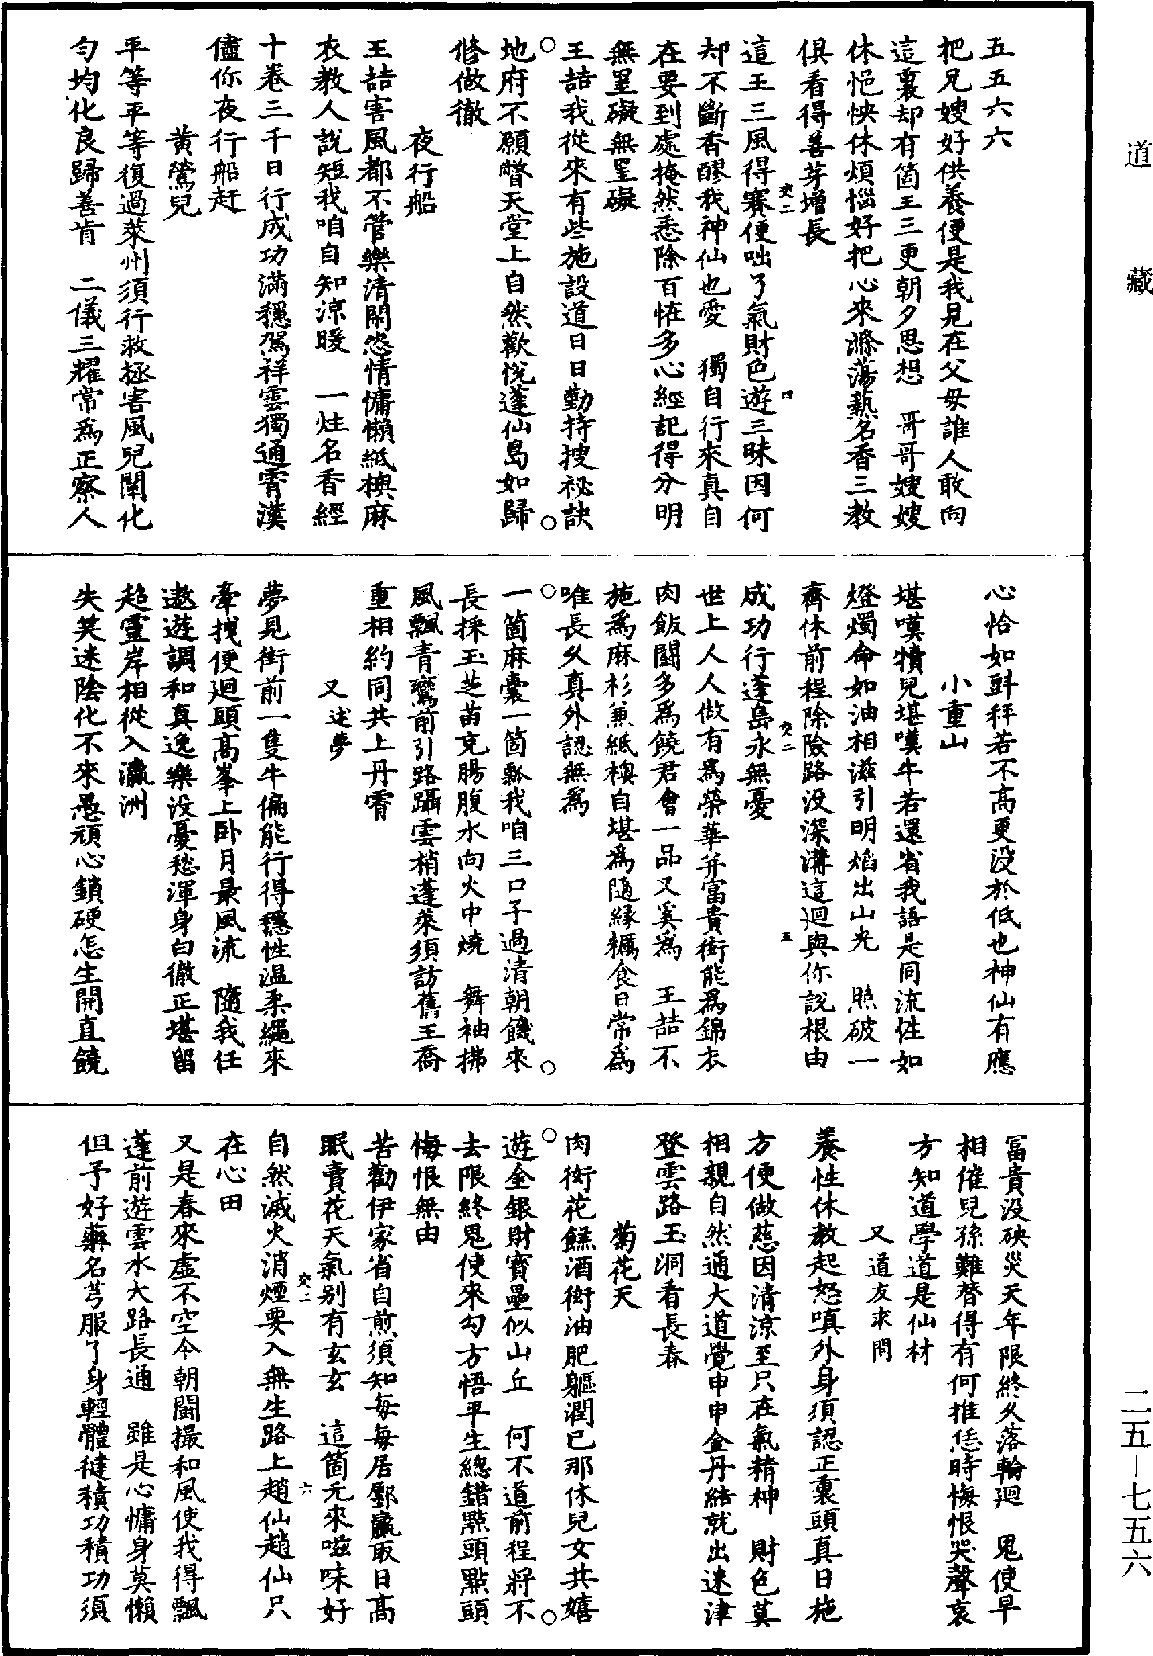 道藏
五五六六
把兄嫂好供養便是我見在父母誰人敢向
這裏却有箇王三更朝夕思想　哥哥嫂嫂
休悒怏休煩惱好把心來滌蕩爇名香三教
俱看得善芽增長
這王三風得賽便咄了氣財色遊三昧因何
却不斷香醪我神仙也愛　獨自行來真自
在要到處掩然悉除百恠多心經記得分明
無罣礙無罣礙
王喆我從來有些施設道日日勤持搜祕訣
地府不願瞥天堂上自然歡悅蓬仙島如歸
修做徹
夜行船
王喆害風都不管樂清閑恣情慵懶紙襖麻
衣教人說短我咱自知涼暖　一炷名香經
十卷三千日行成功滿穩駕祥雲獨通霄漢
儘你夜行船赶
黃鶯兒
平等平等復過萊州須行救拯害風兒闡化
匀均化良歸善肯　二儀三耀常為正察人
心恰如㪷秤若不高更没於低也神仙有應
小重山
堪嘆犢兒堪嘆牛若還省我語是同流性如
燈燭命如油相滋引明焰出山光　照破一
齊休前程除險路没深溝這迴與你說根由
成功行蓬島永無憂
世上人人做有為榮華并富貴衒能為錦衣
肉飯鬭多為饒君會一品又奚為　王喆不
施為麻杉兼紙襖自堪為隨緣糲食日常為
唯長久真外認無為
一箇麻囊一箇瓢我咱三口子過清朝饑來
長採玉芝苗充腸腹水向火中燒　舞袖拂
風飄青鸞前引路躡雲梢蓬萊須訪舊王喬
重相約同共上丹霄
又述夢
夢見街前一隻牛偏能行得穩性溫柔繩來
牽拽便迴頭高峯上卧月最風流　隨我任
遨遊調和真逸樂没憂愁渾身白徹正堪留
超靈岸相從入瀛洲
失笑迷陰化不來愚頑心鎖硬怎生開直饒
冨貴没殃災天年限終久落輪迴　鬼使早
相催兒孫難替得有何推恁時悔恨哭聲哀
方知道學道是仙材
又道友求問
養性休教起怒嗔外身須認正裏頭真日施
方便做慈因清凉至只在氣精神　財色莫
相親自然通大道覺申申金丹結就出迷津
登雲路玉洞看長春
菊花天
肉衒花餻酒衒油肥軀潤已那休兒女共嬉
遊金銀財寶壘似山丘　何不道前程將不
去限終鬼使來勾方悟平生總錯點頭點頭
悔恨無由
苦勸伊家省自煎須知每每居鄽贏取日高
眠賣花天氣别有玄玄　這箇元來嗞味好
自然滅火消煙要入無生路上趙仙趙仙只
在心田
又是春來虛不空今朝閤撮和風使我得飄
蓬前遊雲水大路長通　雖是心慵身莫懶
但予好藥名芎服了身輕體徤積功積功須
二五－七五六